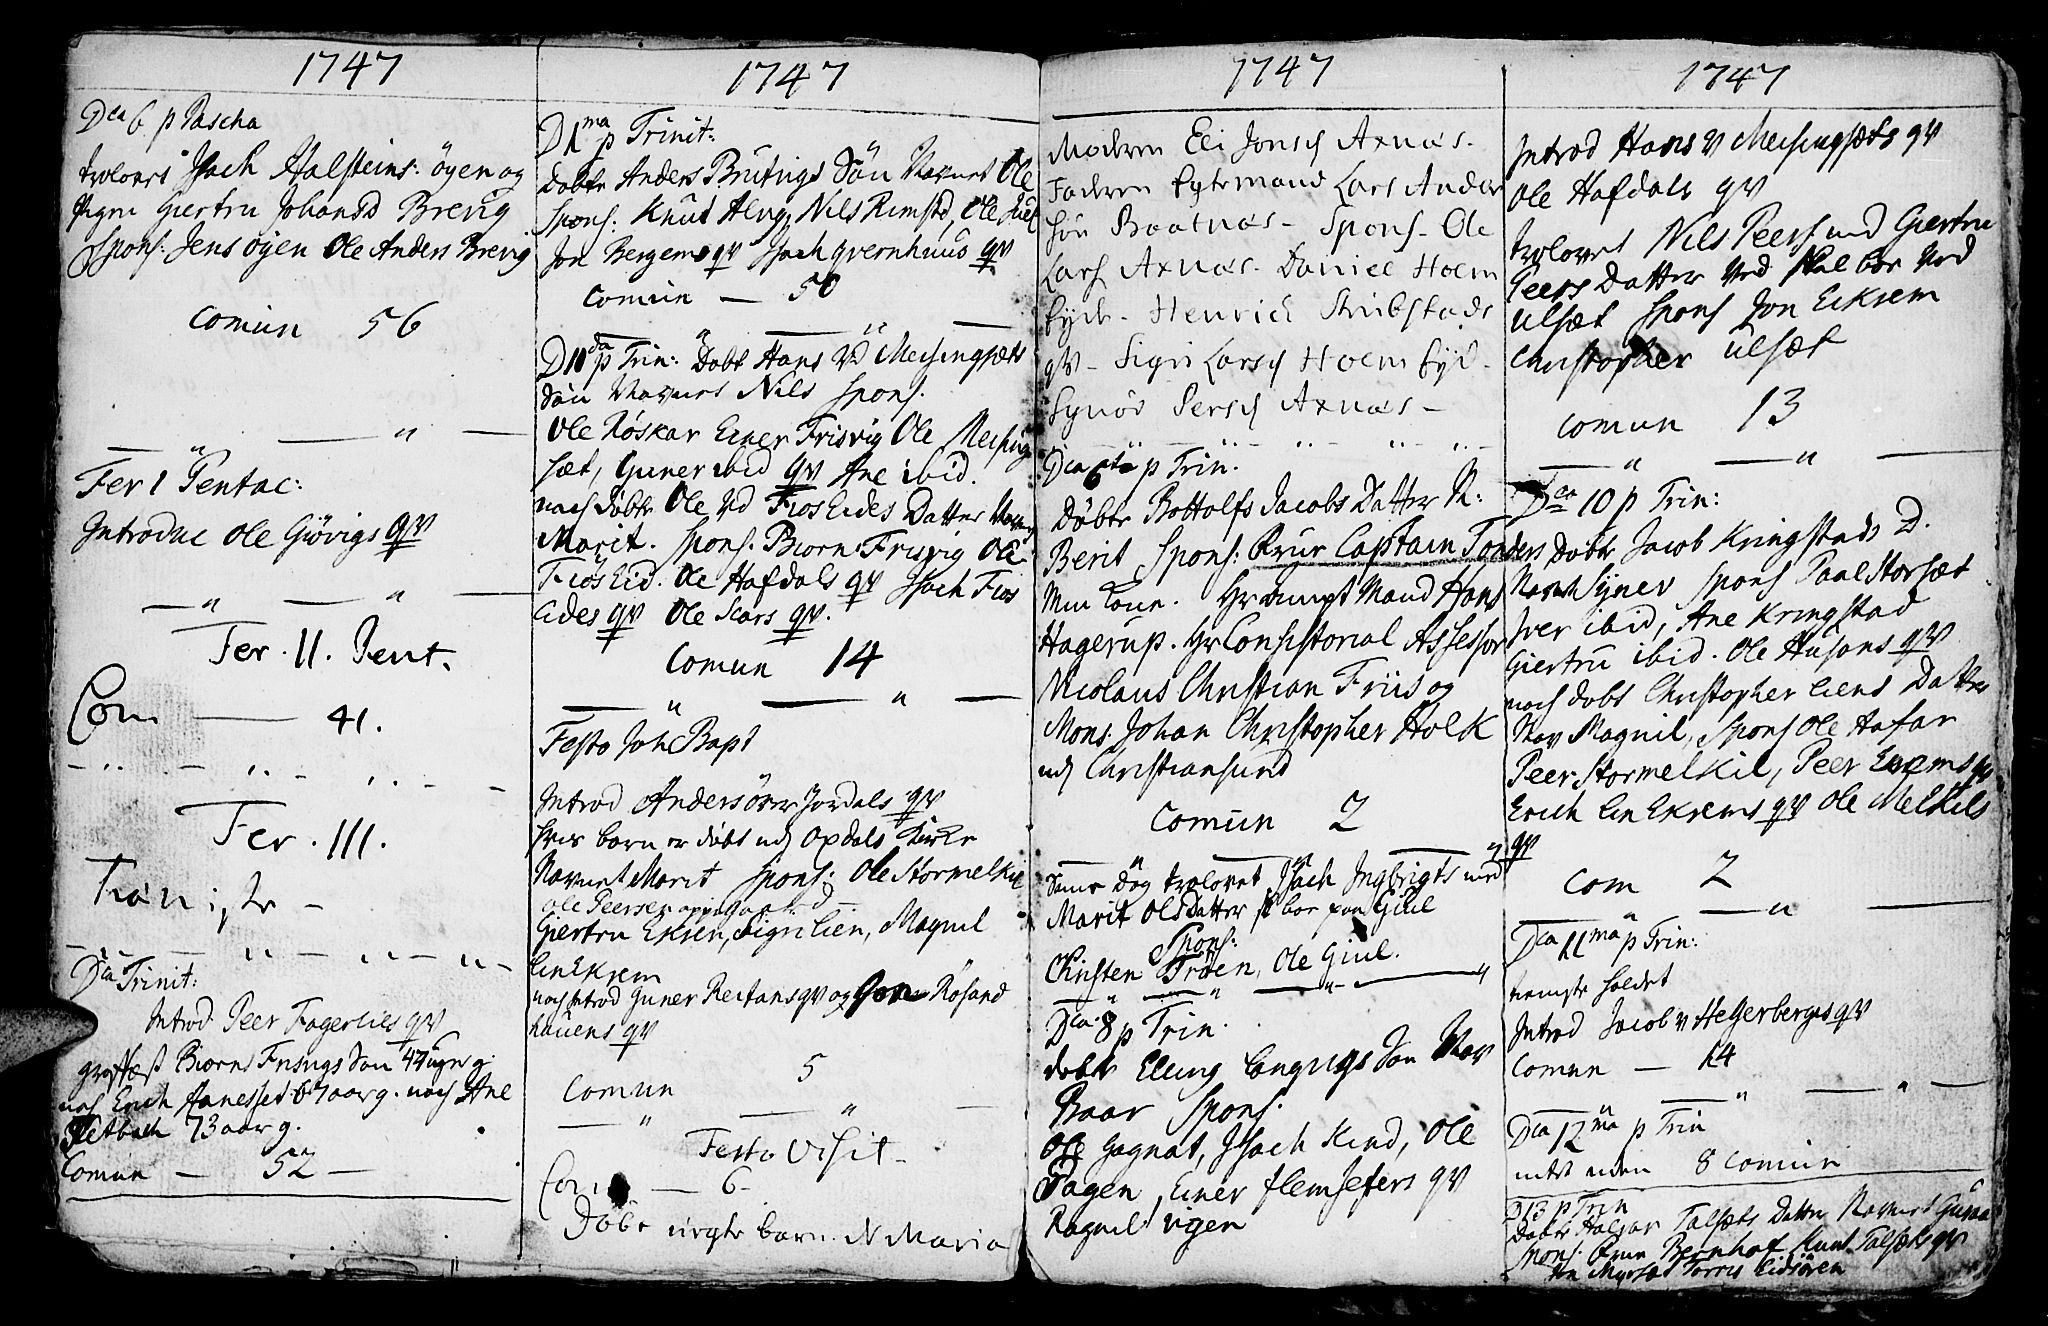 1747
Dca 6 p Pascha
trolovet Isach Halsteins: øyen og
Pigen Giertru Johansd Brevig
Spons: Jens øyen Ole Anders Brevig
Comun 56
Fer 1 Pentac:
Introduc Ole Giøvigs qv
Fer. II. Pent.
Com — 41.
Fer. III.
Dca Trinit:
Introd Peer Fagerlies qv
graffæst Biørns Frisvigs Søn 47 uger g.
noch Erich 67 aar g. noch Ane
73 aar g.
Comun — 52 —
1747
D 1ma p Trinit:
Døbte Anders Brevigs Søn Navnet Ole
Spons: Knut Nils Rimstd, Ole
Jon Bergems qv Isach qvernhuus qv
Comun — 50
D 11da p Trin: Døbt Hans Vd Meisingsæts
Søn Navnet Nils Spons.
Ole Røskar Einer Frisvig Ole Meising
sæt, Guner ibid qv Ane ibid.
noch døbte Ole Vd Fiøs Eides Datter Navn
Marit. Spons. Biørn Frisvig Ole
Fiøs Eid. Ole Hafdals qv Isach Fiøs
eides qv Ole Skars qv.
Comun 14
Festo Joh Bapt
Introd Anders øvre Jordals qv
hvis barn er døbt udj Opdals Kirke
Navnet Marit Spons: Ole Stormelkil
Ole Peersen
Giertru Ekren, Sigri Lien, Magnil
lin Ekrem
noch Introd Guner Reitans qv og Røsand
hauens qv
Comun 5
Festo Visit
Com — 6
Døbt uegte barn N Maria
1747
Moderen Eli Jonsd Axnæs.
Faderen Gifte mand Lars Ander
Søn Baatnæs. Spons. Ole
Lars Axnæs. Daniel Holm
Eyde. Henrich Skribstads
qv. Sigri Larsd Holm Eyd.
Synøv Persd Axnæs.
Dca 6ta p Trin.
Døbte Bottolfs Jacobs Datter N:
Berit Spons: Frue Captain Tonders
Min Kone. Hr Amptmand Hans
Hagerup. Hr Consistorial Assessor
Nicolaus Christian Friis og
Mons: Johan Christopher Holk
udj Christiansund
Comun 2
Samme Dag trolovet Isach Ingbrigts med
Marit Olsdatter sk boe paa Giul
Spons:
Christen Trøen, Ole Giul.
Dca 8 p Trin.
døbte Elling Søn Nav
Baar Spons.
Ole Gagnat, Isach Rind, Ole
Fagen, Einer flemseters qv
Ragnil vigen
1747
Introd Hans v Meisingsæts qv
Ole Hafdals qv
trolovet Nils Peers med Giertru
Peers Datter Ved skal boe Ved
Ulsæt Spons Jon Ekrem
Christopher Ulset
Comun 13
Dca 10 p Trin:
Døbte Jacob Kringstads D.
Navn Synev Spons Paal Storsæt
Iver ibid, Ane Kringstad
Giertru ibid. Ole Husans qv
noch døbt Christopher liens Datter
Nav Magnil, Spons Ole Hafar
Peer Stormelkil, Peer
Erich lin Ekrems qv Ole Melkils
qv
Com 2
Dca 11ma p Trin:
tienste holdet
Introd Jacob v Hegerbergs qv
Comun — 14
Dca 12ma p Trin
intet uden 8 Comun
D 13 p Trin
Døbte Halvar Talsæts Datter Navnet
Spons: Frue Bernhof Knut Talsæts qv
Jon Torris Eidsøren